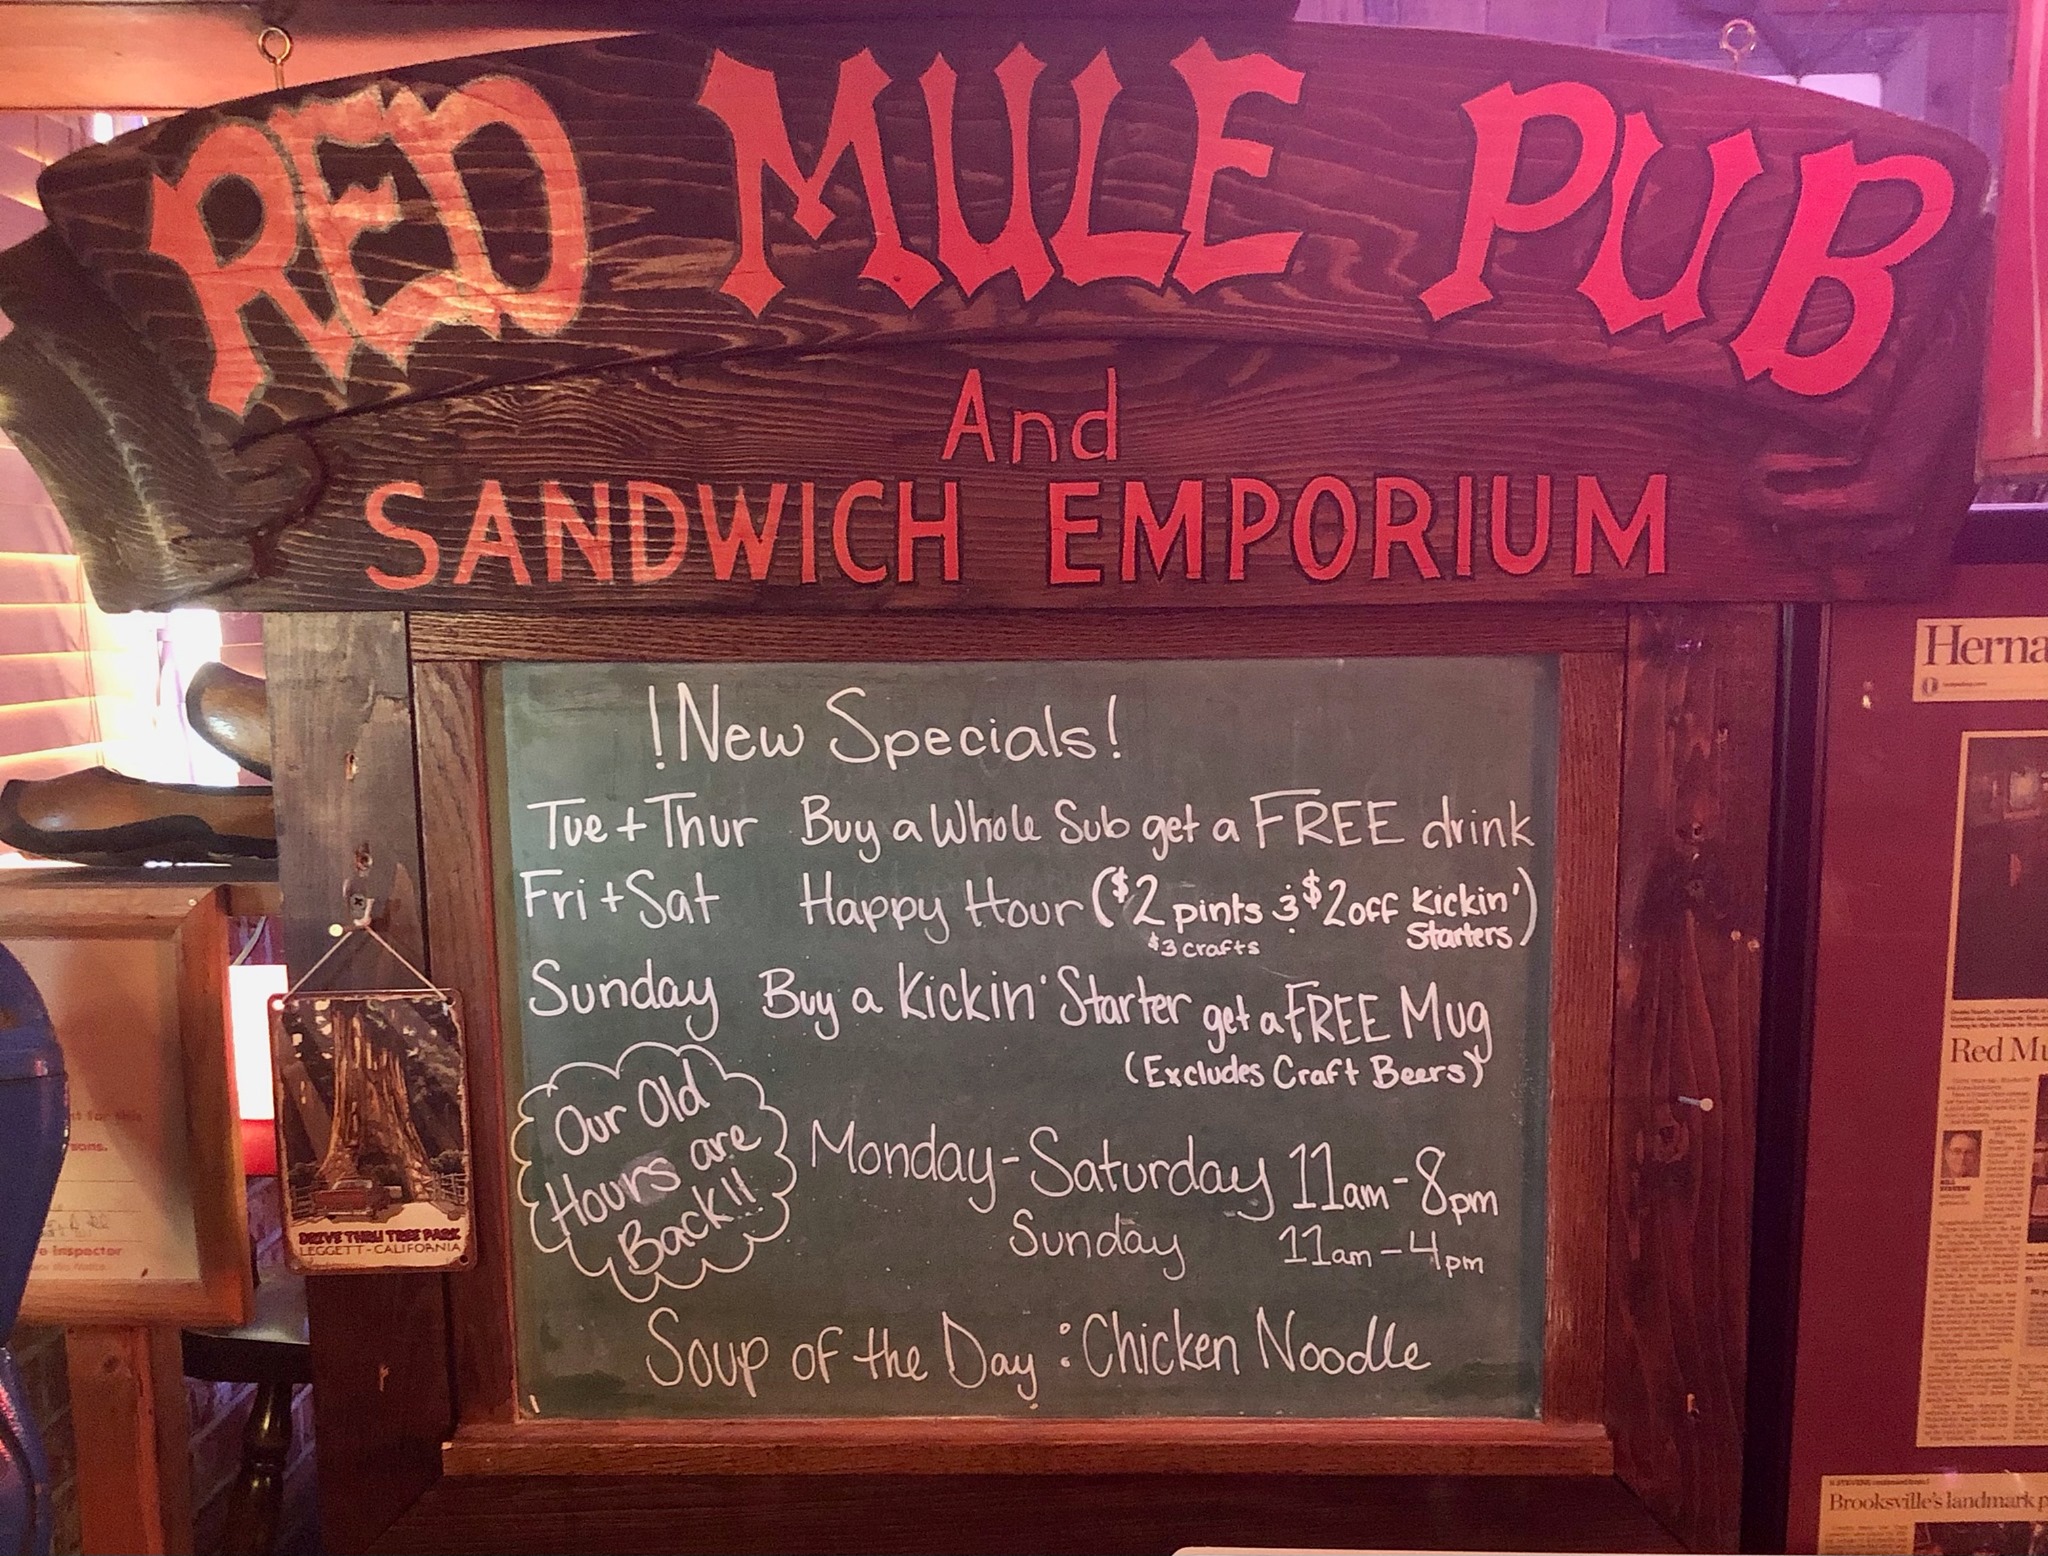 RED MULE PUB
And
SANDWICH EMPORIUM
!New Specials!
Tue + Thur Buy a Whole Sub get a FREE drink
Fri + Sat Happy Hour ($2 pints & $2 off Kickin' Starters)
$3 crafts
Sunday Buy a Kickin' Starter get a FREE Mug
(Excludes Craft Beers)
Our Old
Hours are
Back!!
Monday-Saturday 11am-8pm
Sunday 11am-4pm
Soup of the Day: Chicken Noodle
DRIVE THRU TREE PARK
LEGGETT-CALIFORNIA
Inspector
Herna
Red Mu
Brooksville's landmark p